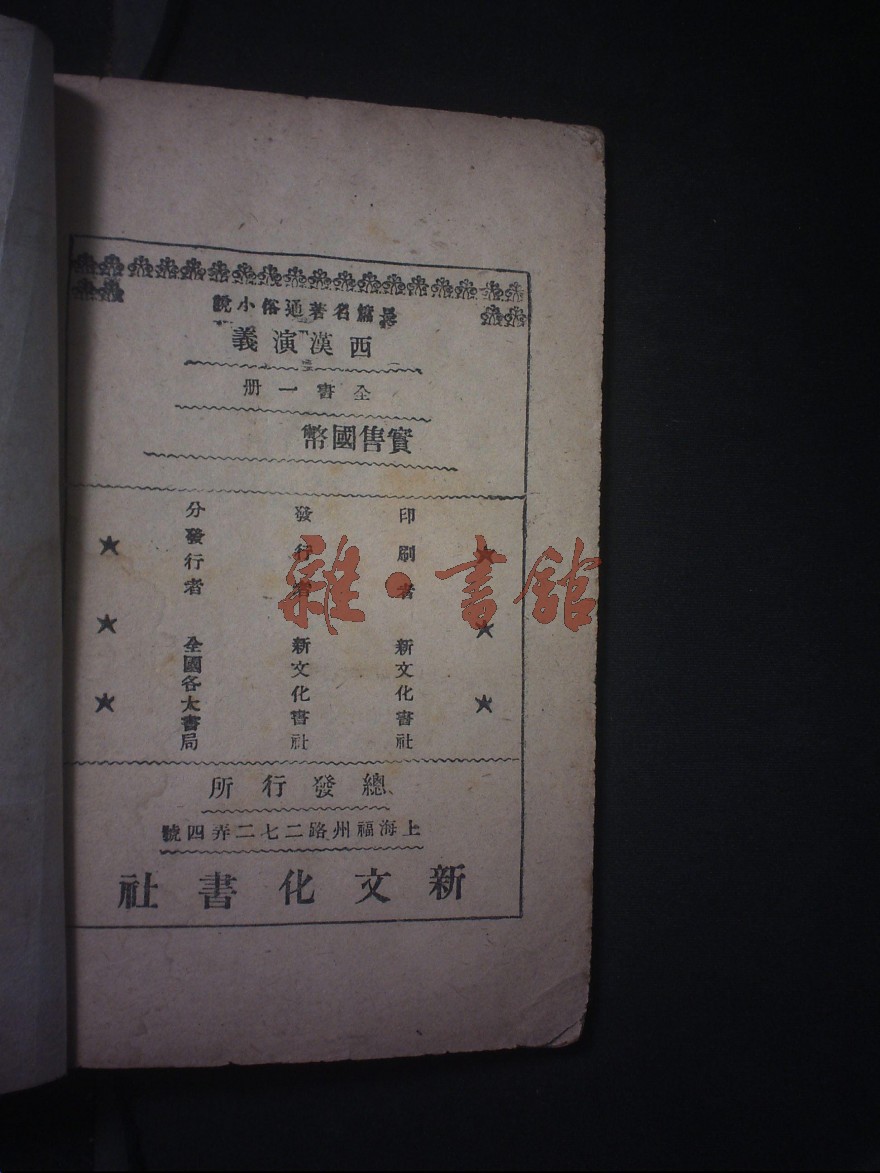 長篇名著通俗小說
西漢演義
全書一册
實售國幣
印刷者 新文化書社
發行者 新文化書社
分發行者 全國各大書局
總發行所
上海福州路二七二弄四號
新文化書社
雜·書館